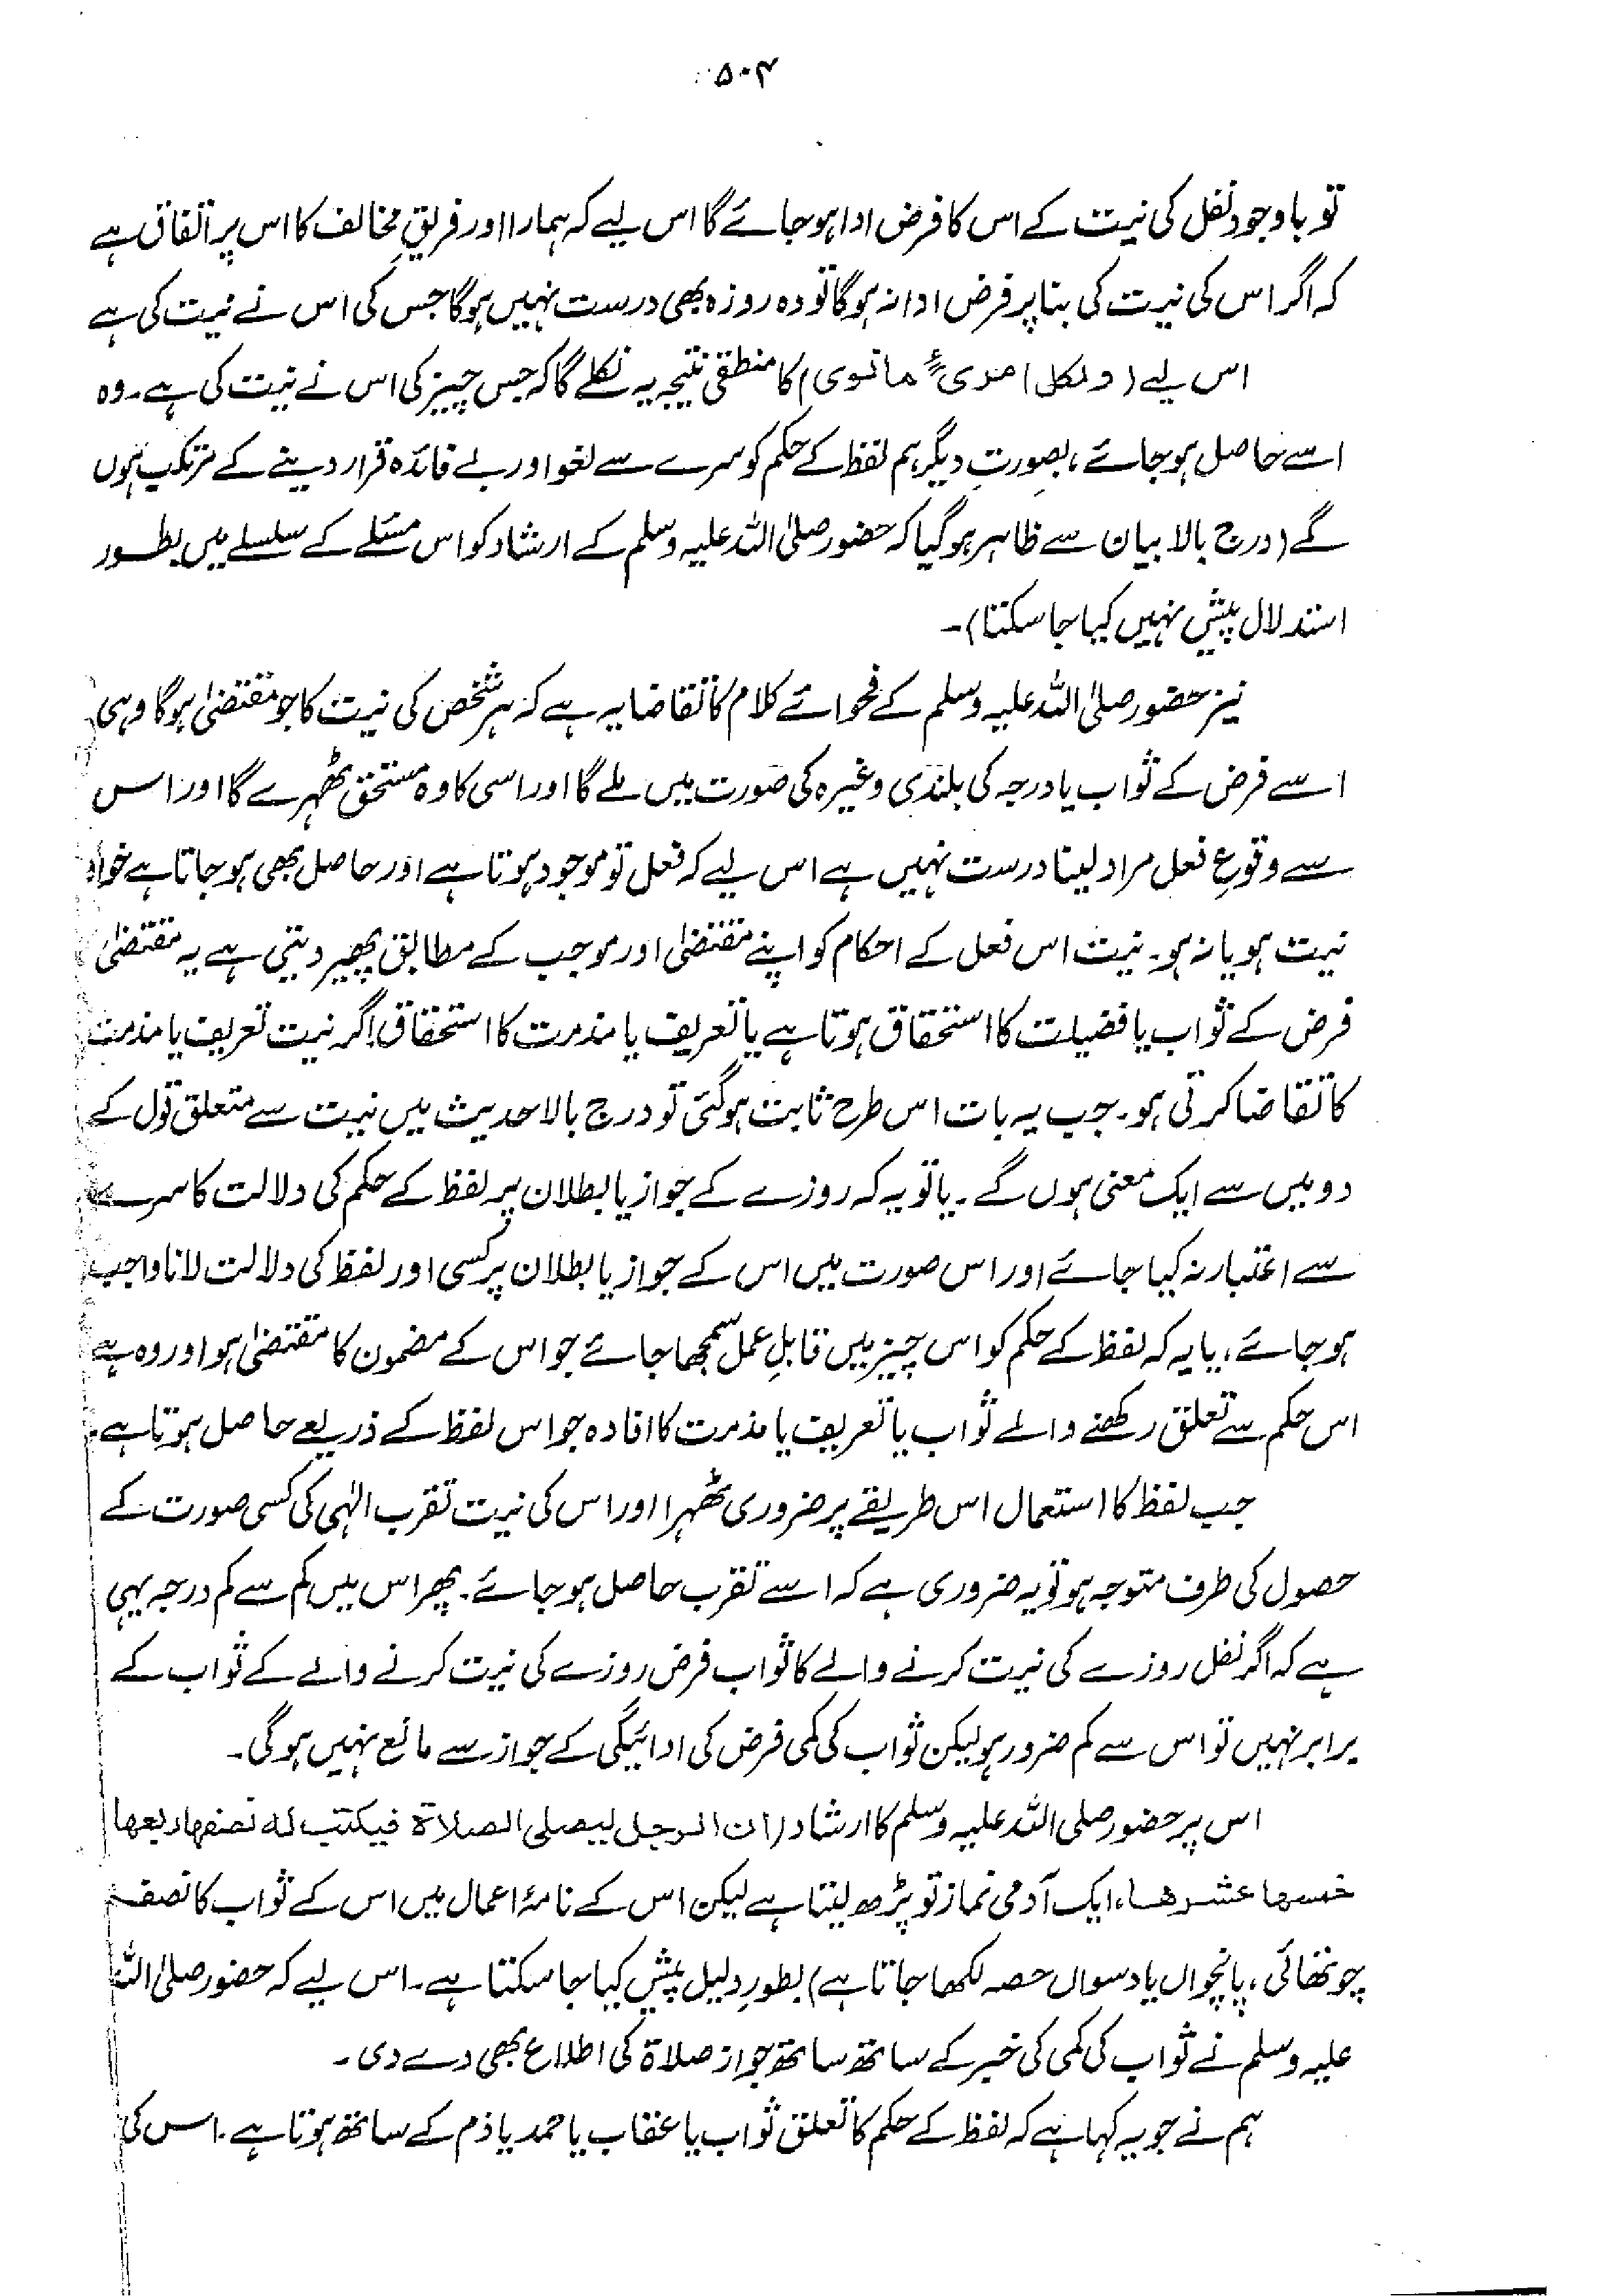 ۵۰۴
تو باوجود نفل کی نیت کے اس کا فرض ادا ہو جائے گا اس لیے کہ ہمارا اور فریقِ مخالف کا اس پر اتفاق ہے
کہ اگر اس کی نیت کی بنا پر فرض ادا نہ ہوگا تو وہ روزہ بھی درست نہیں ہوگا جس کی اس نے نیت کی ہے
اس لیے (ولکل امرئٍ ما نوی) کا منطقی نتیجہ یہ نکلے گا کہ جس چیز کی اس نے نیت کی ہے۔ وہ
اسے حاصل ہو جائے، بصورتِ دیگر ہم لفظ کے حکم کو سرے سے لغو اور بے فائدہ قرار دینے کے مرتکب ہوں
گے (درج بالا بیان سے ظاہر ہو گیا کہ حضور صلی اللہ علیہ وسلم کے ارشاد کو اس مسئلے کے سلسلے میں بطور
استدلال پیش نہیں کیا جا سکتا)۔
نیز حضور صلی اللہ علیہ وسلم کے فحوائے کلام کا تقاضا یہ ہے کہ ہر شخص کی نیت کا جو مقتضیٰ ہوگا وہی
اسے فرض کے ثواب یا درجہ کی بلندی وغیرہ کی صورت میں ملے گا اور اسی کا وہ مستحق ٹھہرے گا اور اس
سے وقوعِ فعل مراد لینا درست نہیں ہے اس لیے کہ فعل تو موجود ہوتا ہے اور حاصل بھی ہو جاتا ہے خواہ
نیت ہو یا نہ ہو۔ نیت اس فعل کے احکام کو اپنے مقتضیٰ اور موجب کے مطابق پھیر دیتی ہے یہ مقتضیٰ
فرض کے ثواب یا فضیلت کا استحقاق ہوتا ہے یا تعریف یا مذمت کا استحقاق اگر نیت تعریف یا مذمت
کا تقاضا کرتی ہو۔ جب یہ بات اس طرح ثابت ہو گئی تو درج بالا حدیث میں نیت سے متعلق قول کے
دو میں سے ایک معنی ہوں گے۔ یا تو یہ کہ روزے کے جواز یا بطلان پر لفظ کے حکم کی دلالت کا سرے
سے اعتبار نہ کیا جائے اور اس صورت میں اس کے جواز یا بطلان پر کسی اور لفظ کی دلالت لانا واجب
ہو جائے، یا یہ کہ لفظ کے حکم کو اس چیز میں قابلِ عمل سمجھا جائے جو اس کے مضمون کا مقتضیٰ ہو اور وہ ہے
اس حکم سے تعلق رکھنے والے ثواب یا تعریف یا مذمت کا افادہ جو اس لفظ کے ذریعے حاصل ہوتا ہے۔
جب لفظ کا استعمال اس طریقے پر ضروری ٹھہرا اور اس کی نیت تقرب الٰہی کی کسی صورت کے
حصول کی طرف متوجہ ہو تو یہ ضروری ہے کہ اسے تقرب حاصل ہو جائے۔ پھر اس میں کم سے کم درجہ یہی
ہے کہ اگر نفل روزے کی نیت کرنے والے کا ثواب فرض روزے کی نیت کرنے والے کے ثواب کے
برابر نہیں تو اس سے کم ضرور ہو لیکن ثواب کی کمی فرض کی ادائیگی کے جواز سے مانع نہیں ہوگی۔
اس پر حضور صلی اللہ علیہ وسلم کا ارشاد (ان الرجل لیصلی الصلاۃ فیکتب لہ نصفھا ربعھا
خمسھا عشرھا، ایک آدمی نماز تو پڑھ لیتا ہے لیکن اس کے نامۂ اعمال میں اس کے ثواب کا نصف
چوتھائی، پانچواں یا دسواں حصہ لکھا جاتا ہے) بطورِ دلیل پیش کیا جا سکتا ہے۔ اس لیے کہ حضور صلی اللہ
علیہ وسلم نے ثواب کی کمی کی خبر کے ساتھ ساتھ جواز صلاۃ کی اطلاع بھی دے دی۔
ہم نے جو یہ کہا ہے کہ لفظ کے حکم کا تعلق ثواب یا عقاب یا حمد یا ذم کے ساتھ ہوتا ہے۔ اس کی